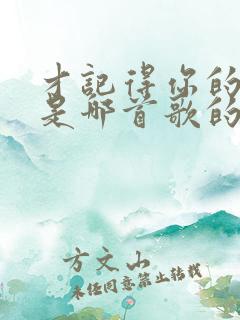 才记得你的
是哪首歌的
方文山
未经同意禁止转载